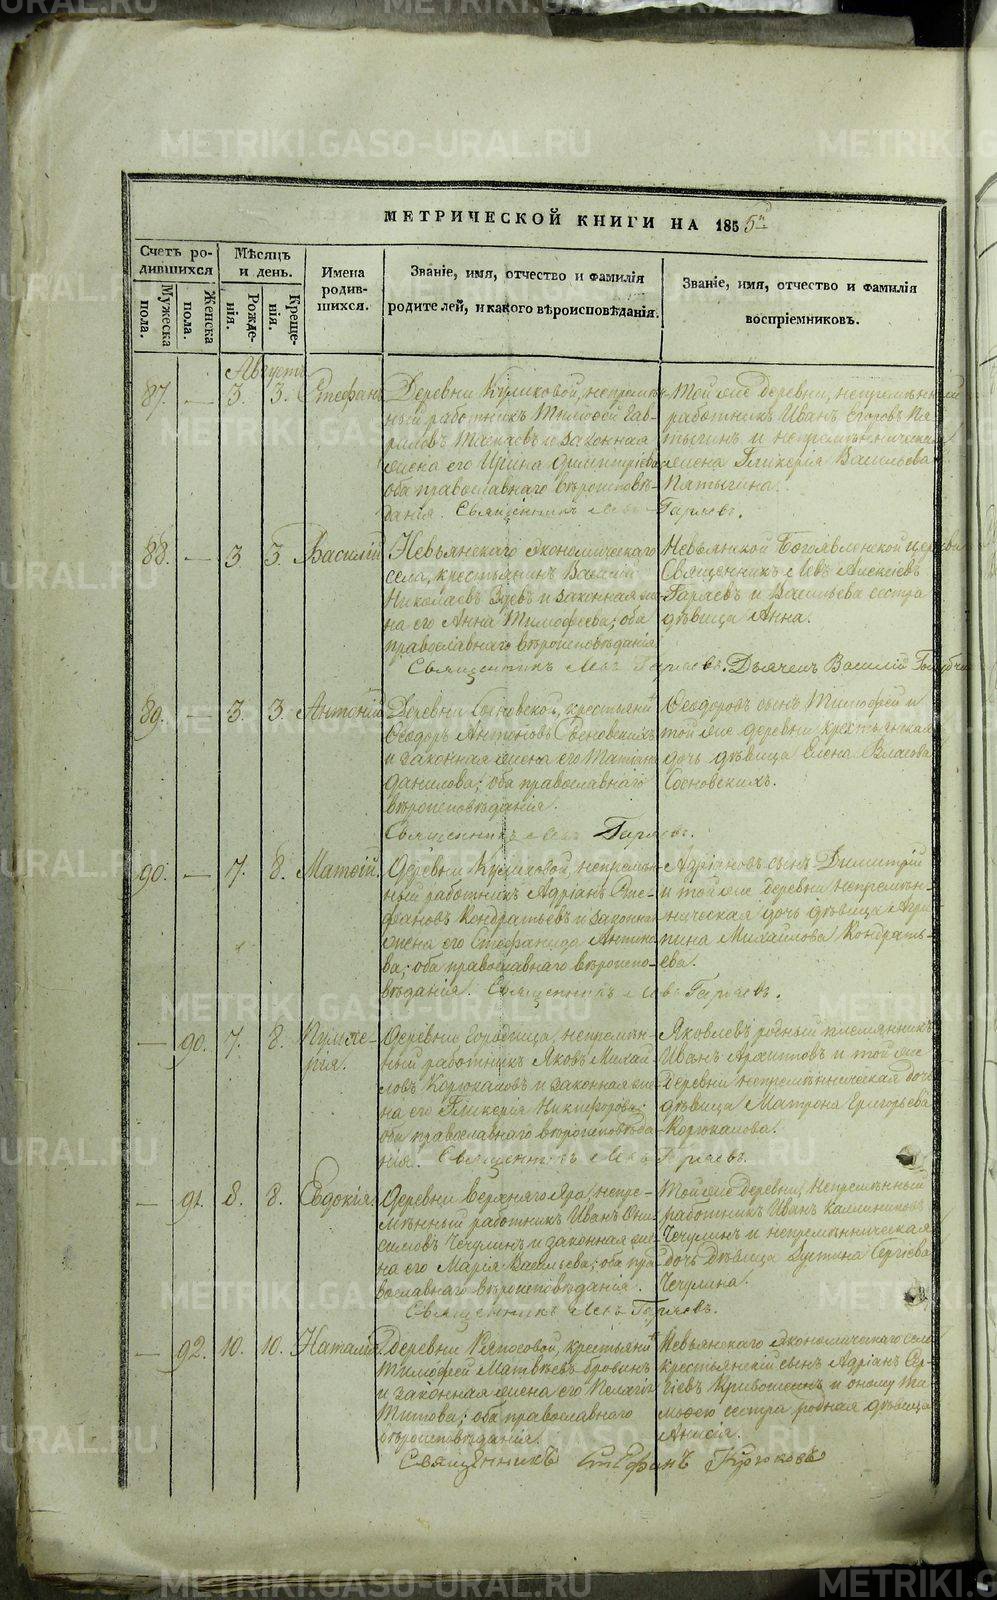 МЕТРИЧЕСКОЙ КНИГИ НА 1855й
Счетъ ро-
дившихся
Мѣсяцъ
и день.
Имена
родив-
шихся.
Званіе, имя, отчество и фамилія
родителей, и какого вѣроисповѣданія.
Званіе, имя, отчество и фамилія
воспріемниковъ.
Мужеска
пола.
Женска
пола.
Рожде-
нія.
Креще-
нія.
Августъ
87. — 3. 3. Стефанъ
Деревни Куликовой, непремѣн-
ный работникъ Тимофей Гав-
риловъ и законная
жена его Ирина Димитріева
оба православнаго вѣроисповѣ-
данія. Священникъ Левъ Гаряевъ.
Той же деревни, непремѣнный
работникъ Иванъ Егоровъ Пя-
тыгинъ и непремѣнническая
жена Гликерія Васильева
Пятыгина.
88. — 3. 3. Василій
Невьянскаго экономическаго
села, крестьянинъ Василій
Николаевъ Зуевъ и законная же-
на его Анна Тимофеева; оба
православнаго вѣроисповѣданія
Священникъ Левъ Гаряевъ. Дьячекъ Василій
Невьянской Богоявленской церкви
Священникъ Левъ Алексіевъ
Гаряевъ и Васильева сестра
дѣвица Анна.
89. — 3. 3. Антоній
Деревни Сосновской, крестьянинъ
Ѳеодоръ Антоновъ Сосновскихъ
и законная жена его Татіана
Данилова; оба православнаго
вѣроисповѣданія.
Священникъ Левъ Гаряевъ.
Ѳеодоровъ сынъ Тимофей и
той же деревни крестьянская
дочь дѣвица Елена Власова
Сосновскихъ.
90. — 7. 8. Матѳій
Деревни Куликовой, непремѣн-
ный работникъ Адріанъ Сте-
фановъ Кондратьевъ и законная
жена его Стефанида Антипо-
ва; оба православнаго вѣроиспо-
вѣданія. Священникъ Левъ Гаряевъ.
Адріановъ сынъ Димитрій
и той же деревни непремѣн-
ническая дочь дѣвица Агри-
пина Михайлова Кондрать-
ева.
— 90. 7. 8. Пульхе-
рія.
Деревни Городища, непремѣн-
ный работникъ Яковъ Михай-
ловъ Корюкаловъ и законная же-
на его Гликерія Никифорова;
оба православнаго вѣроисповѣда-
нія. Священникъ Левъ Гаряевъ.
Яковлевъ родный племянникъ
Иванъ Архиповъ и той же
деревни непремѣнническая дочь
дѣвица Матрона Григорьева
Корюкалова.
— 91. 8. 8. Евдокія.
Деревни Верхняго Яра, непре-
мѣнный работникъ Иванъ Они-
симовъ Чечулинъ и законная же-
на его Марія Васильева; оба пра-
вославнаго вѣроисповѣданія.
Священникъ Левъ Гаряевъ.
Той же деревни, непремѣнный
работникъ Иванъ Каллиниковъ
Чечулинъ и непремѣнническая
дочь дѣвица Сергіева
Чечулина.
— 92. 10. 10. Наталія
Деревни Ряпосовой, крестьянинъ
Тимофей Матвѣевъ
и законная жена его Пелагія
Титова; оба православнаго
вѣроисповѣданія.
Священникъ Стефанъ
Невьянскаго экономическаго села
крестьянскій сынъ Адріанъ Сер-
гіевъ и оному Ти-
мофею сестра родная дѣвица
Анисія.
METRIKI.GASO-URAL.RU